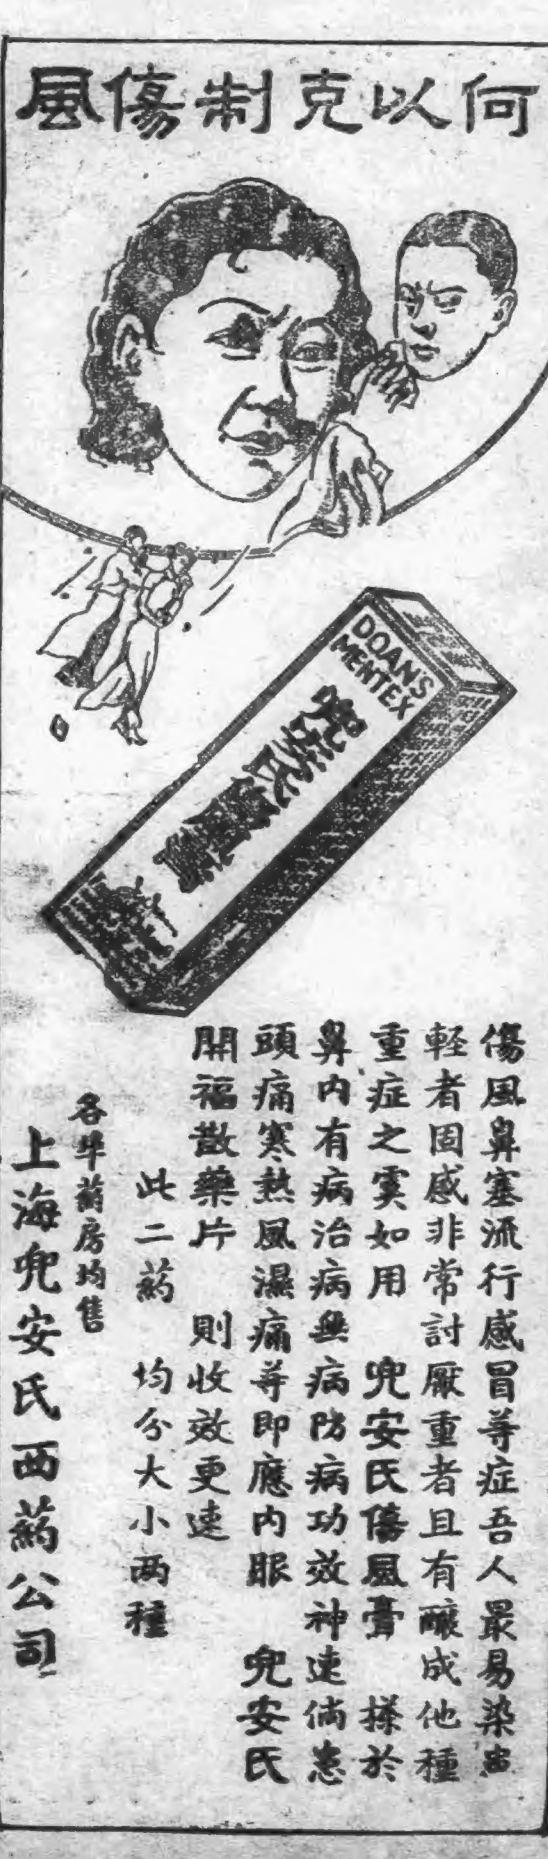 何以克制傷風
DOAN'S
MENTEX
兜安氏傷風膏
傷風鼻塞流行感冒等症吾人最易染患
輕者固感非常討厭重者且有釀成他種
重症之虞如用 兜安氏傷風膏 搽於
鼻內有病治病無病防病功效神速倘患
頭痛寒熱風濕痛等即應內服 兜安氏
開福散藥片 則收效更速
此二葯 均分大小两種
各埠葯房均售
上海兜安氏西葯公司